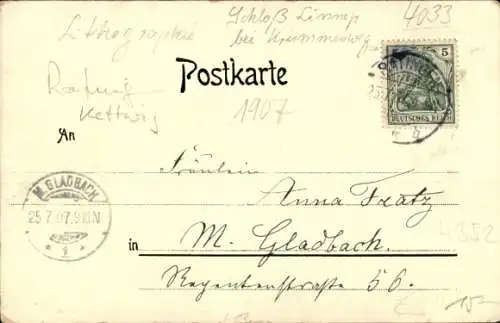 Lithographie
Schloß Linnep
bei Krummenweg
4033
Ratingen
Kettwig
Postkarte
1907
5
DEUTSCHES REICH
An
Fräulein
Anna Fratz
in M. Gladbach.
Regentenstraße 56.
M. GLADBACH
25.7.07.9-10N
1
4352